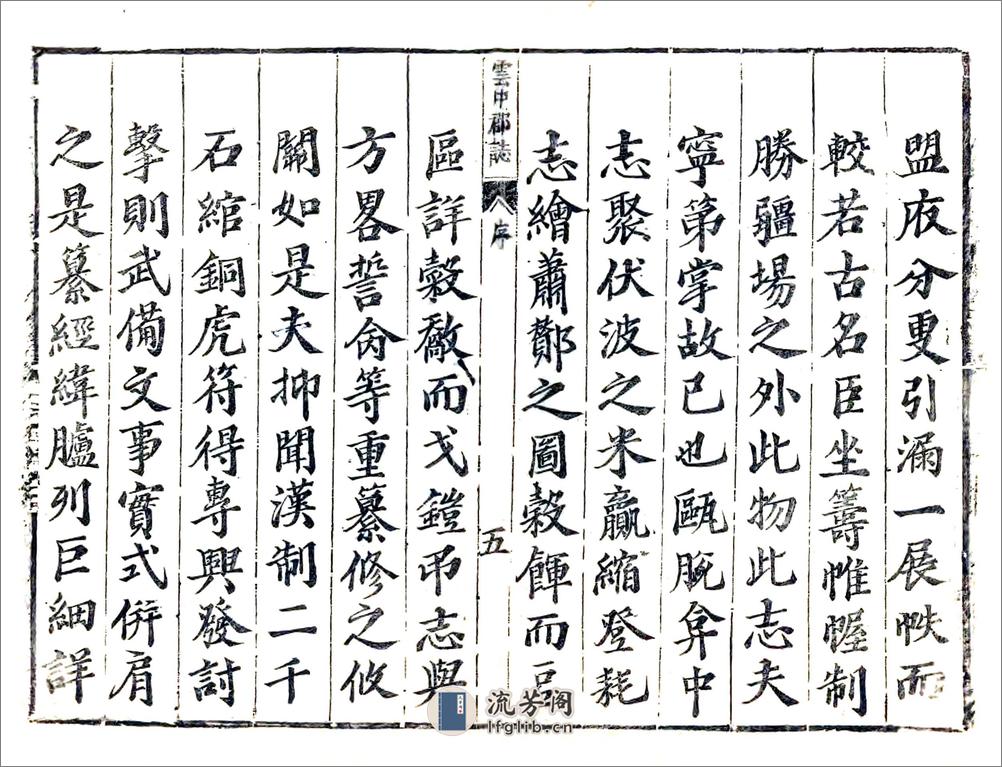 盟府分更引漏一展帙而
較若古名臣坐籌帷幄制
勝疆場之外此物此志夫
寧第掌故已也甌脫弇中
志聚伏波之米贏縮登耗
志繪蕭酇之圖穀餫而
雲中郡誌
序
五
區詳穀敵而戈鎧弔志與
方畧誓肏等重纂修之攸
關如是夫抑聞漢制二千
石綰銅虎符得專興發討
擊則武備文事實式併肩
之是纂經緯臚列巨細詳
流芳阁
lfglib.cn